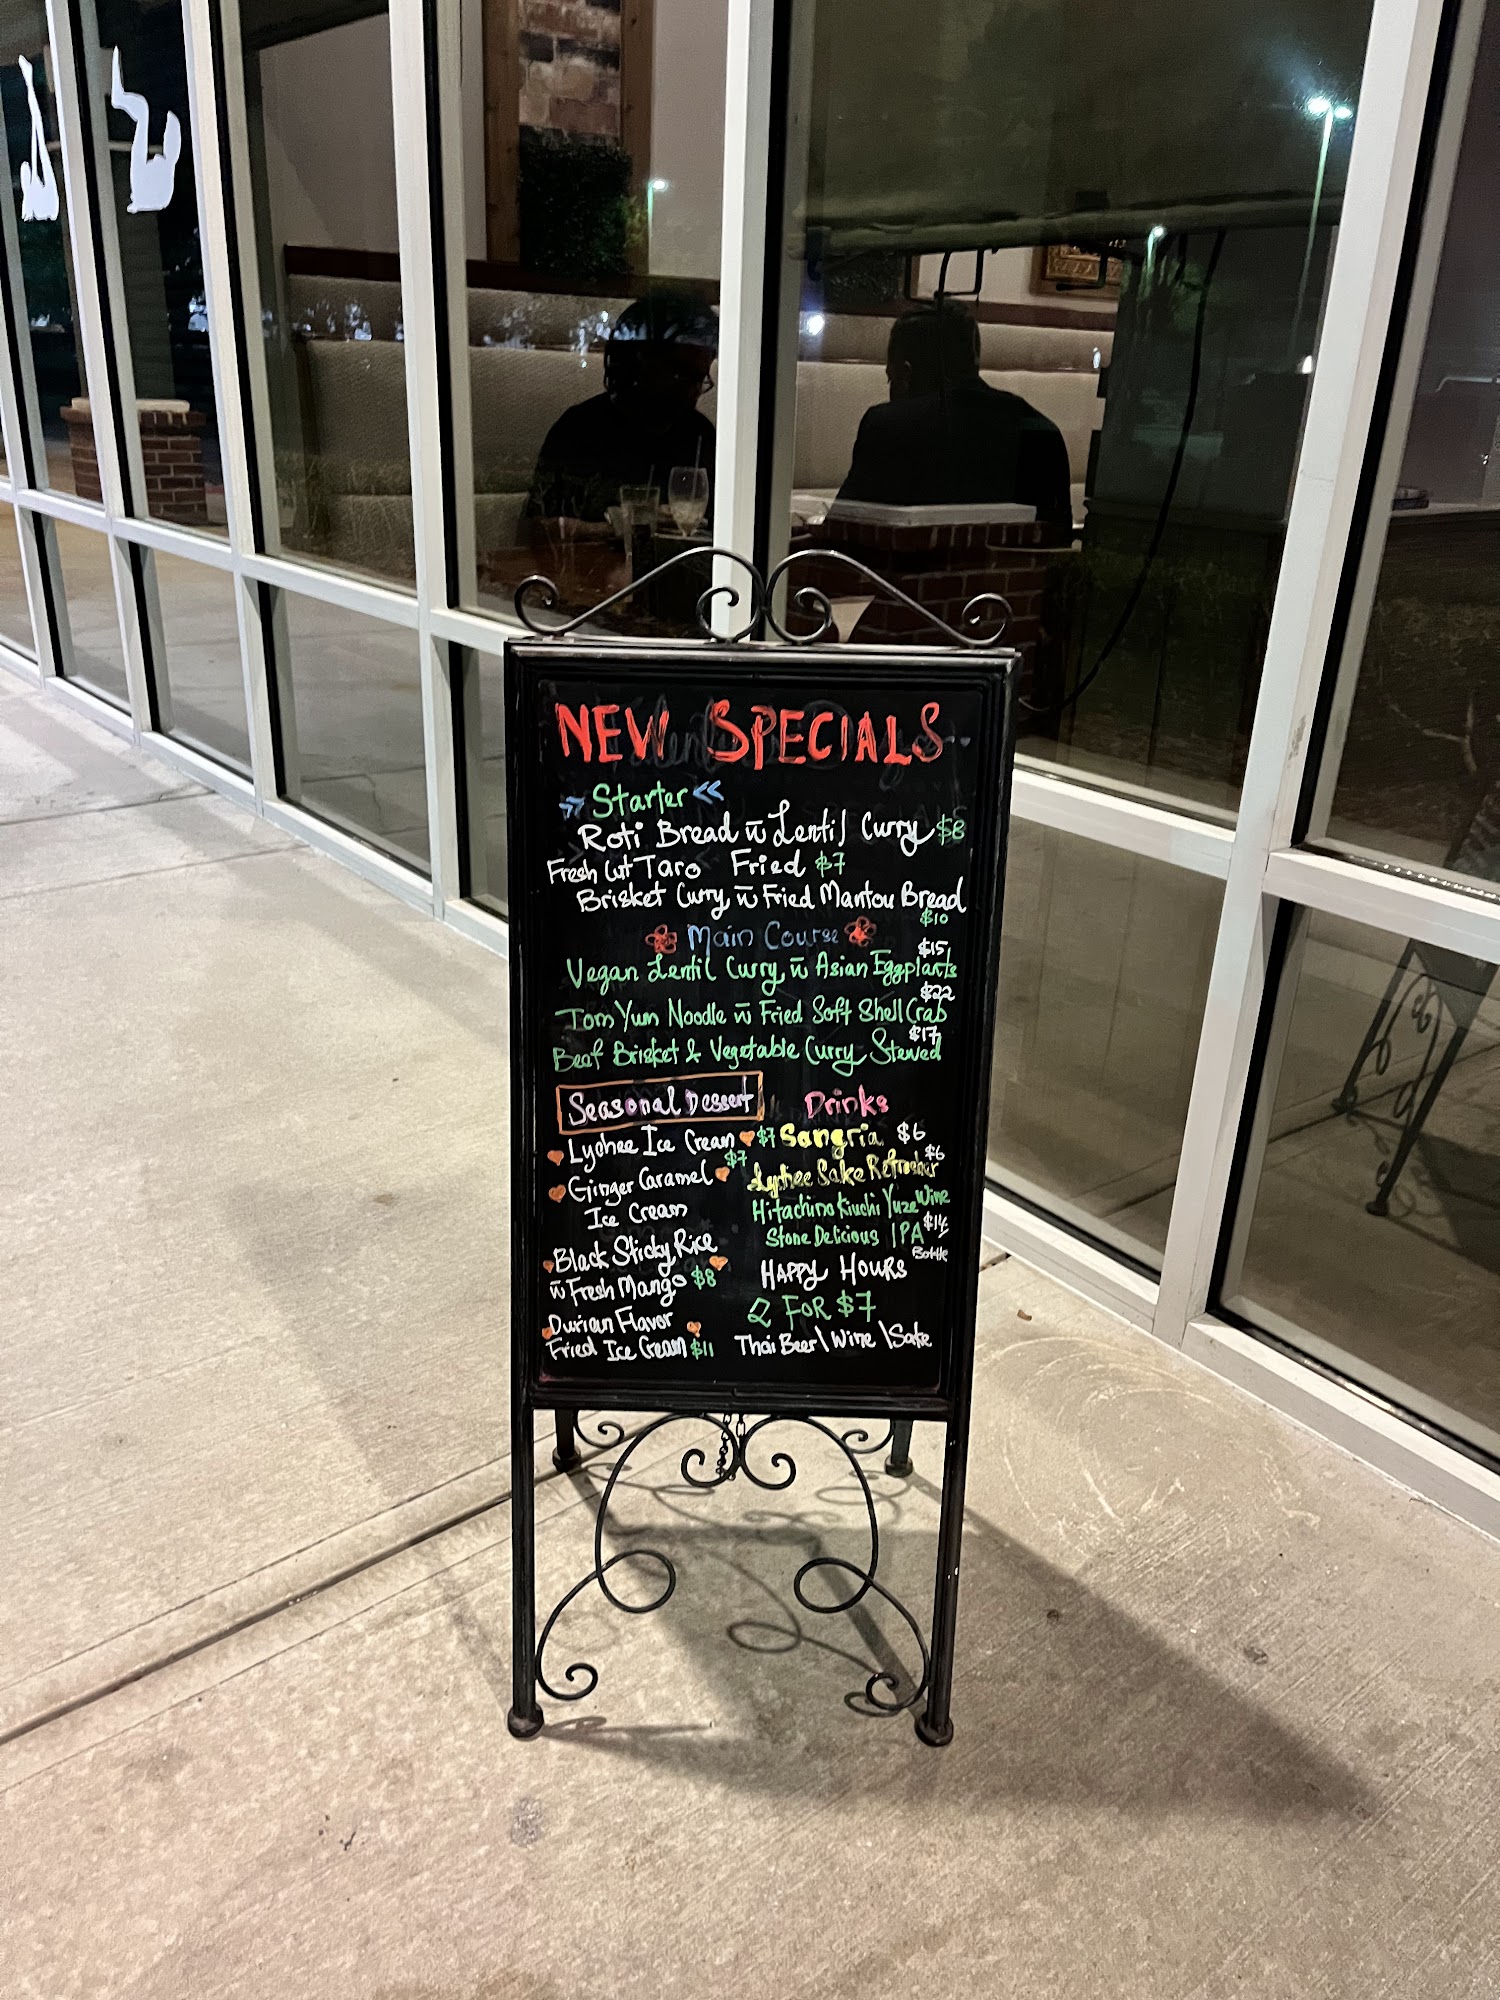 NEW SPECIALS
Starter
Roti Bread w̄ Lentil Curry $8
Fresh Cut Taro Fried $7
Brisket Curry w̄ Fried Mantou Bread
$10
Main Course
$15
Vegan Lentil Curry w̄ Asian Eggplants
$22
Tom Yum Noodle w̄ Fried Soft Shell Crab
$17
Beef Brisket & Vegetable Curry Stewed
Seasonal Dessert
Lychee Ice Cream $7
Ginger Caramel $7
Ice Cream
Black Sticky Rice
w̄ Fresh Mango $8
Durian Flavor
Fried Ice Cream $11
Drinks
Sangria $6
$6
Lychee Sake Refresher
Hitachino Kiuchi Yuze Wine
Stone Delicious IPA $14
Bottle
HAPPY HOURS
2 FOR $7
Thai Beer \ Wine \ Sake